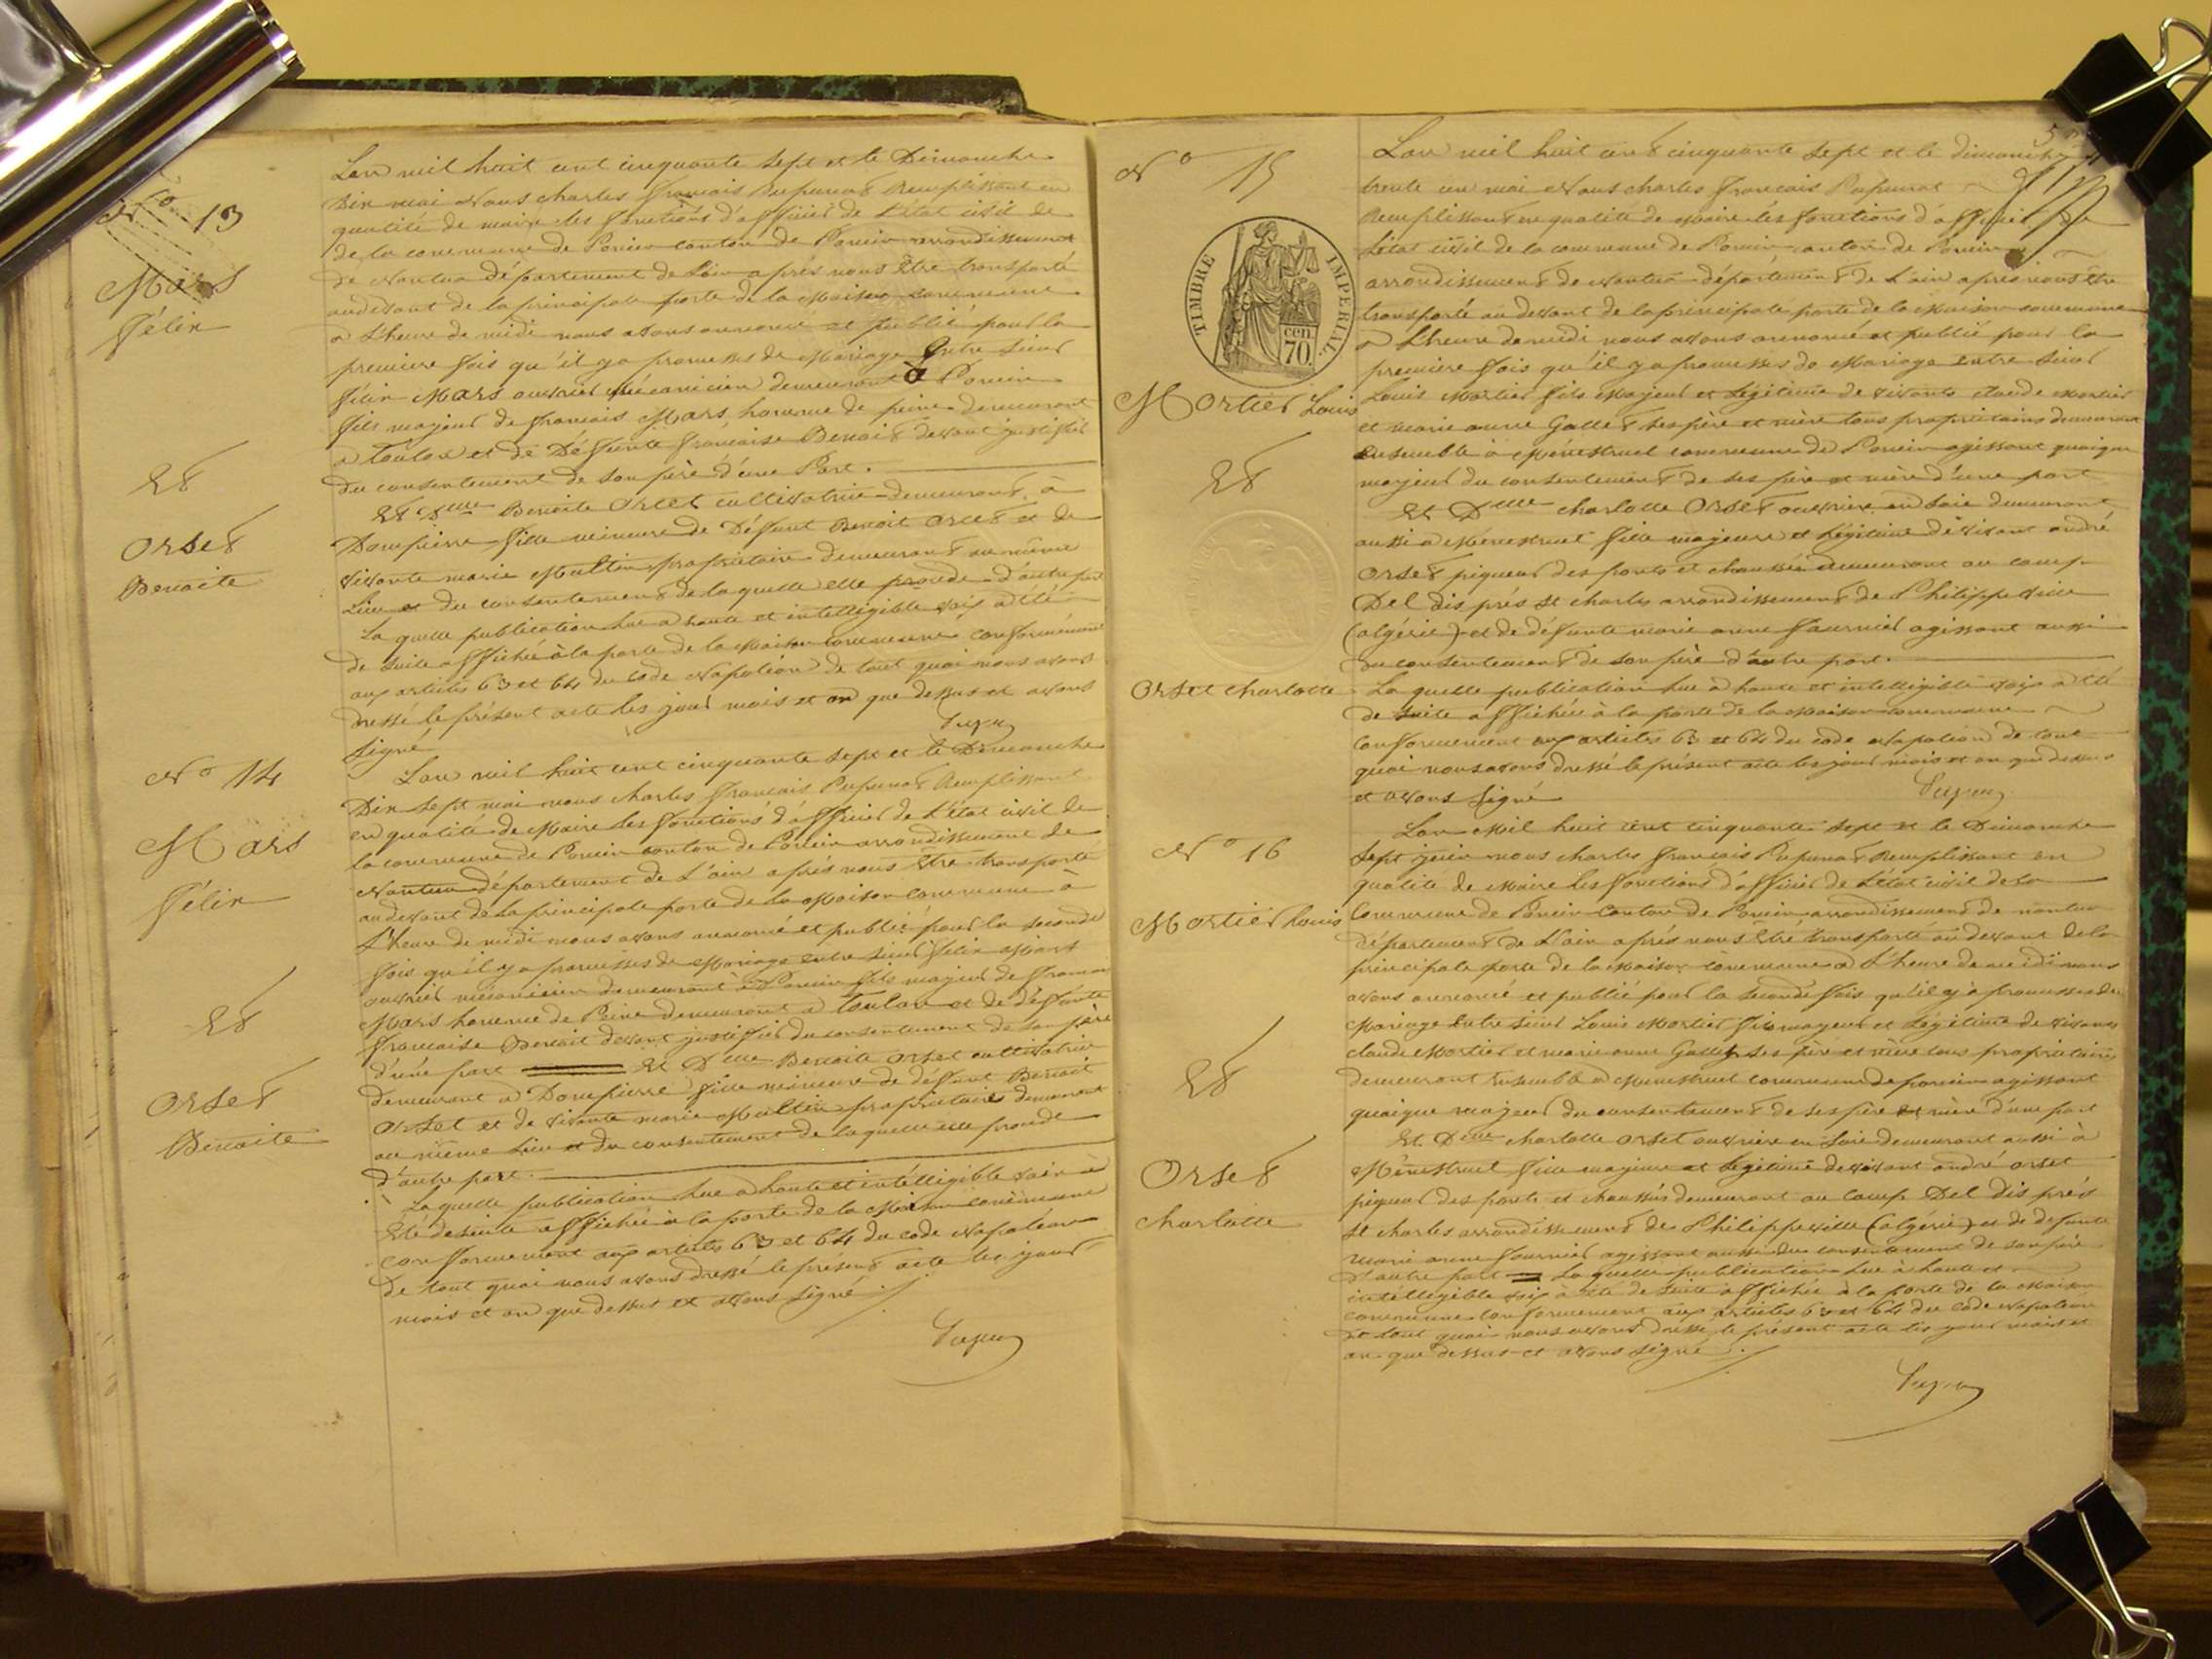 No 13
Mars
Félix
Et
Orset
Benoite
Lan mil huit cent cinquante sept et le Dimanche
Dix mai Nous charles francais Pupunat Remplissant en
qualité de maire les fonctions d'officier de l'état civil de
de la commune de Poncin canton de Poncin arrondissement
de Nantua département de L'ain après nous être transporté
audevant de la principale porte de la Maison commune
a L'heure de midi nous avons annoncé et publié pour la
première fois qu'il y a promesses de Mariage Entre Sieur
félix Mars ouvrier mécanicien demeurant à Poncin
fils majeur de francais Mars homme de peine demeurant
a Toulon et de Défunte francaise Benoit devant justifier
du consentement de son père d'une Part.
Et Dlle Benoite Orset cultivatrice demeurant à
Dompierre fille mineure de Défunt Benoit Orset et de
vivante marie Maltin propriétaire demeurant au même
Lieu et du consentement de la quelle elle procède d'autre part
La quelle publication lue a haute et intelligible voix a été
de suite affichée à la porte de la Maison commune conformément
aux articles 63 et 64 du code Napoléon de tout quoi nous avons
dressé le présent acte les jour mois et an que dessus et avons
Signé
No 14
Mars
félix
Et
Orset
Benoite
Lan mil huit cent cinquante sept et le Dimanche
Dix sept mai nous charles francais Pupunat Remplissant
en qualité de Maire les fonctions d'officier de L'état civil de
la commune de Poncin canton de Poncin arrondissement de
Nantua département de L'ain après nous être transporté
audevant de la principale porte de la Maison commune à
L'heure de midi nous avons annoncé et publié pour la seconde
fois qu'il y a promesses de Mariage entre Sieur félix Mars
ouvrier mécanicien demeurant à Poncin fils majeur de francais
Mars homme de Peine demeurant a Toulon et de défunte
francaise Benoit devant justifier du consentement de son père
d'une part Et Dlle Benoite Orset cultivatrice
demeurant a Dompierre fille mineure de défunt Benoit
Orset et de vivante marie Maltin propriétaire demeurant
au même Lieu et du consentement de laquelle elle procède
d'autre part.
La quelle publication lue a haute et intélligible voix à
Eté de suite affichée à la porte de la Maison commune
conformement aux articles 63 et 64 du code Napoléon
De tout quoi nous avons dressé le présent acte les jour
mois et an que dessus et avons signé
No 15
TIMBRE IMPERIAL
cen
70.
Mortier Louis
Et
Orset charlotte
Lan mil huit cent cinquante sept et le dimanche
trente un mai Nous charles francais Pupunat
Remplissant en qualité de Maire les fonctions d'officier de
L'état civil de la commune de Poncin canton de Poncin
arrondissement de Nantua département de L'ain après nous être
transporté au devant de la principale porte de la Maison commune
a L'heure de midi nous avons annoncé et publié pour la
première fois qu'il y a promesses de Mariage entre Sieur
Louis Mortier fils Majeur et Légitime de vivants claude Mortier
et marie anne Gallet ses père et mère tous propriétaires demeurant
ensemble à Ménestruel commune de Poncin agissant quoique
majeur du consentement de ses père et mère d'une part
Et Dlle charlotte Orset ouvrière en soie demeurant
aussi a Ménestruel fille majeure et légitime de vivant andré
Orset piqueur des ponts et chaussées demeurant au camp
Del dis près St charles arrondissement de Philippeville
(algérie) et de défunte marie anne fournier agissant aussi
du consentement de son père d'autre part.
La quelle publication lue à haute et intelligible voix a été
de suite affichée à la porte de la Maison commune
Conformement aux articles 63 et 64 du code Napoléon de tout
quoi nous avons dressé le présent acte les jour mois et an que dessus
et avons signé
No 16
Mortier Louis
Et
Orset
charlotte
Lan Mil huit cent cinquante sept et le Dimanche
Sept juin nous charles francais Pupunat Remplissant en
qualité de Maire les fonctions d'officier de L'état civil de la
Commune de Poncin Canton de Poncin arrondissement de nantua
département de L'ain après nous être transporté au devant de la
principale porte de la Maison commune a L'heure de midi nous
avons annoncé et publié pour la seconde fois qu'il y a promesses de
Mariage Entre Sieur Louis Mortier fils majeur et Légitime de vivants
claude Mortier et marie anne Gallet ses père et mère tous propriétaires
demeurant Ensemble a Menestruel commune de poncin agissant
quoique majeur du consentement de ses père et mère d'une part
Et Dlle charlotte Orset ouvrière en soie demeurant aussi à
Ménestruel fille majeure et légitime de vivant andré Orset
piqueur des ponts et chaussées demeurant au camp Del dis près
St charles arrondissement de Philippeville (algérie) et de défunte
marie anne fournier agissant aussi du consentement de son père
d'autre part La quelle publication lue à haute et
intélligible voix à été de suite affichée à la porte de la Maison
commune conformement aux articles 63 et 64 du Code Napoléon
de tout quoi nous avons dressé le présent acte les jour mois et
an que dessus et avons signé